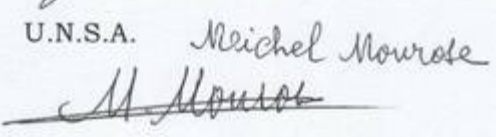 U.N.S.A. Meichel Mourose
M. Mouros